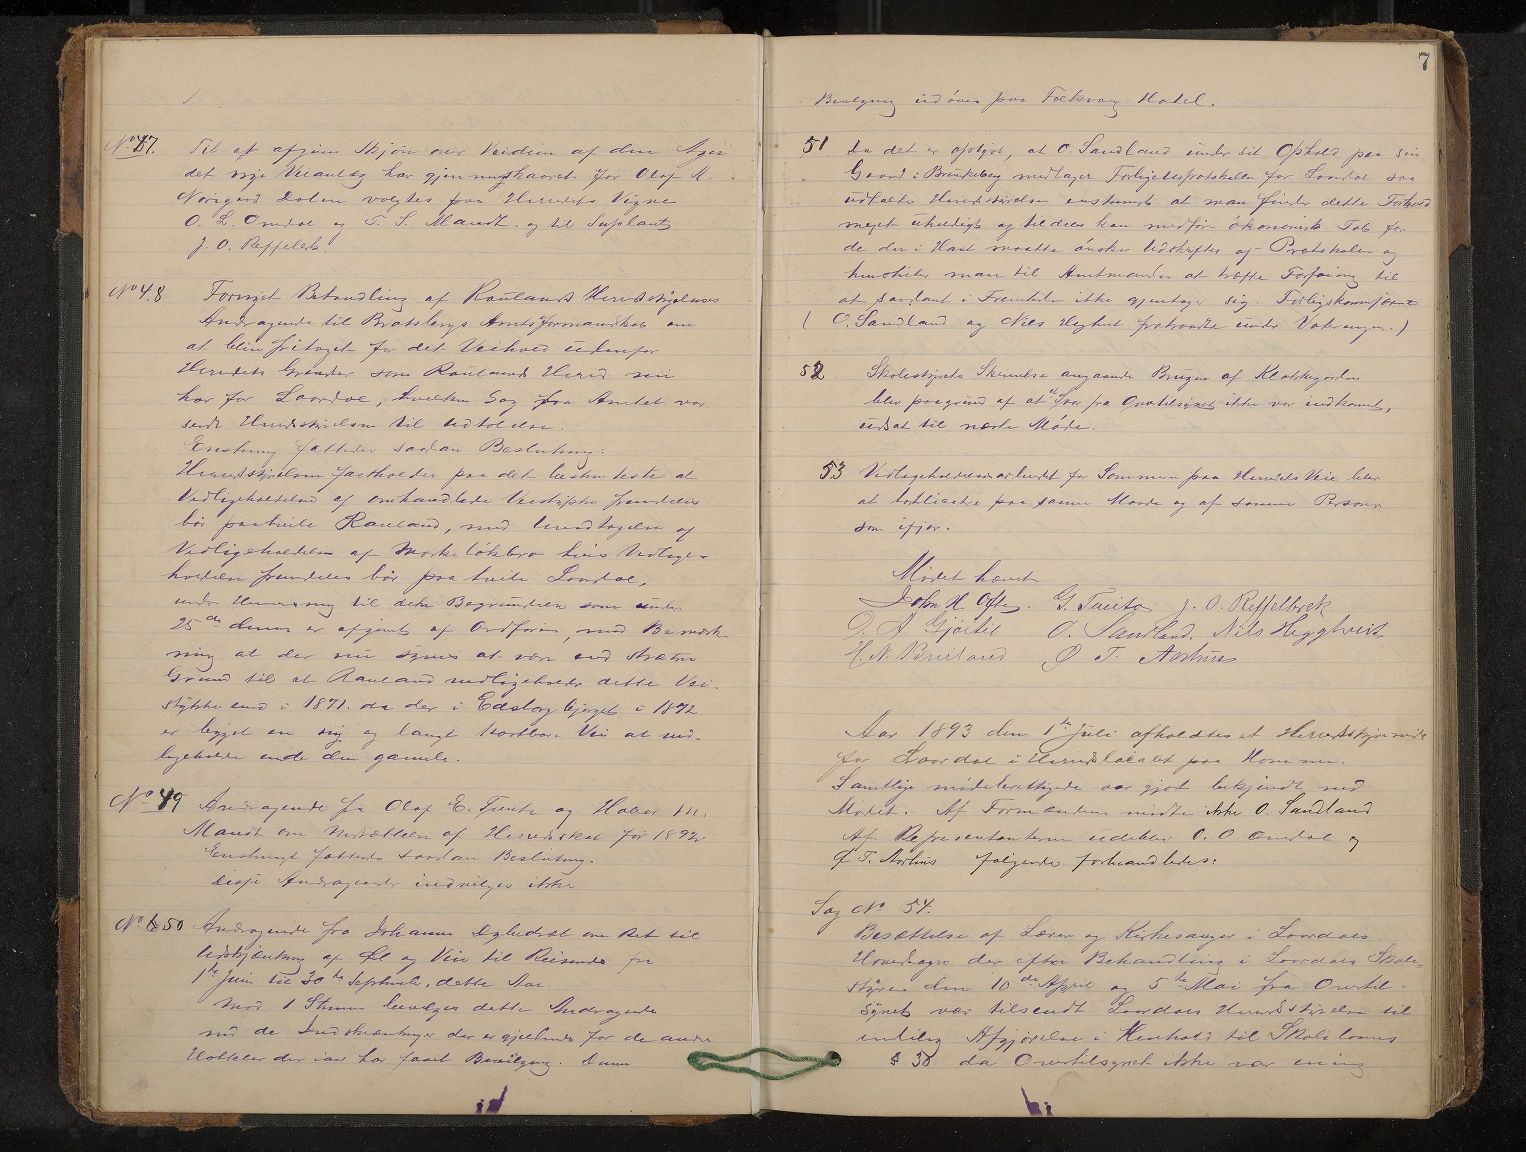 No 47. Til at afgive Skjøn over Værdien af den Ager
det nye Veianlæg har gjennemskaaret for Olaf M.
Norigard Dalen valgtes fra Herredets Vegne
O. L. Omdal og T. S. Mandt. og til Suplant
J. O. Reffelbek
No 48 Fornyet Behandling af Raulands Herredsstyrelses
Andragende til Bratsbergs Amtsformandskab om
at blive fritaget for det Veihold udenfor
Herredets Grændser som Rauland Herred nu
har for Laardal, hvilken Sag fra Amtet var
sendt Herredsstyrelsen til Udtalelse.
Enstemmig fattedes saadan Beslutning:
Herredsstyrelsen fastholder paa det bestemteste at
Vedligeholdelse af omhandlede Veistykke fremdeles
bør paahvile Rauland, med Undtagelse af
Vedligeholdelsen af Morkeløkbro hvis Vedlige-
holdelse fremdeles bør paa hvile Laardal,
under Henvisning til dette Begrundelse som under
25de dennes er afgivet af Ordføren, med Bemærk-
ning at der nu synes at være end større
Grund til at Rauland vedligeholder dette Vei-
stykke end i 1871. da der i Eidsborgbjerget i 1872
er bygget en ny og langt kortbar Vei at ved-
ligeholde ende den gamle.
No 49 Andragende fra Olaf E. Tveito og Halvor M.
Mandt om Nedsættelse af Herredsskat for 1892.
Enstemmigt fattedes saadan Beslutning.
Disse Andragender indvilges ikke
No 50 Andragende fra Johanne Dalen om Ret til
Udskjænkning af Øl og Vin til Reisende fra
1te Juni til 30te September. dette Aar.
Mod 1 Stemme bevilges dette Andragende
med de Indskrænkninger der er gjældende for de andre
Hoteller der iaar har faaet Bevilgning. Denne
7
Bevilgning udøves paa Folkvang Hotel.
51 Da det er oplyst, at O. Sandland under sit Ophold paa sin
Gaard i Brunkeberg medtager Forligelsesprotokollen for Laardal saa
udtalte Herredsstyrelsen enstemmigt at man finder dette Forhold
meget uheldigt og tildels kan medføre økonomisk Tab for
de der i Hast maatte ønske Udskrifter af Protokolen og
henstiller man til Amtmanden at træffe Forføining til
at saadant i Fremtiden ikke gjentager sig. Forligskommissærene
( O. Sandland og Nils Heghtveit fratraadte under Voteringen. )
52 Skolestyrets Skrivelse angaaende Brugen af Klokkegarden
blev paagrund af at Svar fra Overtilsynet ikke var indkommet,
udsat til næste Møde.
53 Vedligeholdelsesarbeidet for Sommeren paa Herredets Veie blev
at bortlicitere paa samme Maade og af samme Personer
som ifjor.
Mødet hævet
John H. Ofte. G. Tveito J. O. Reffelbrek
O. A Gjøitil O. Sandland. Nils Heggtveit
H. N. Breiland Ø T. Aarhus
Aar 1893 den 1ste Juli afholdtes et Herredsstyremøde
for Laardal i Herredslocalet paa Homme.
Samtlige mødeberettigede var gjort bekjendt med
Mødet. Af Formændene mødte ikke O. Sandland
Af Repræsentanterne udeblev O. O Omdal og
Ø T. Aarhus følgende forhandledes:
Sag No 54.
Besættelse af Lærer og Kirkesanger i Laardals
Hovedsogn der efter Behandling i Laardals Skole-
styre den 10de April og 5te Mai fra Overtil-
synet var tilsendt Laardals Herredsstyrelse til
endelig Afgjørelse i Henhold til Skolelovens
§ 38 da Overtilsynet ikke var enig